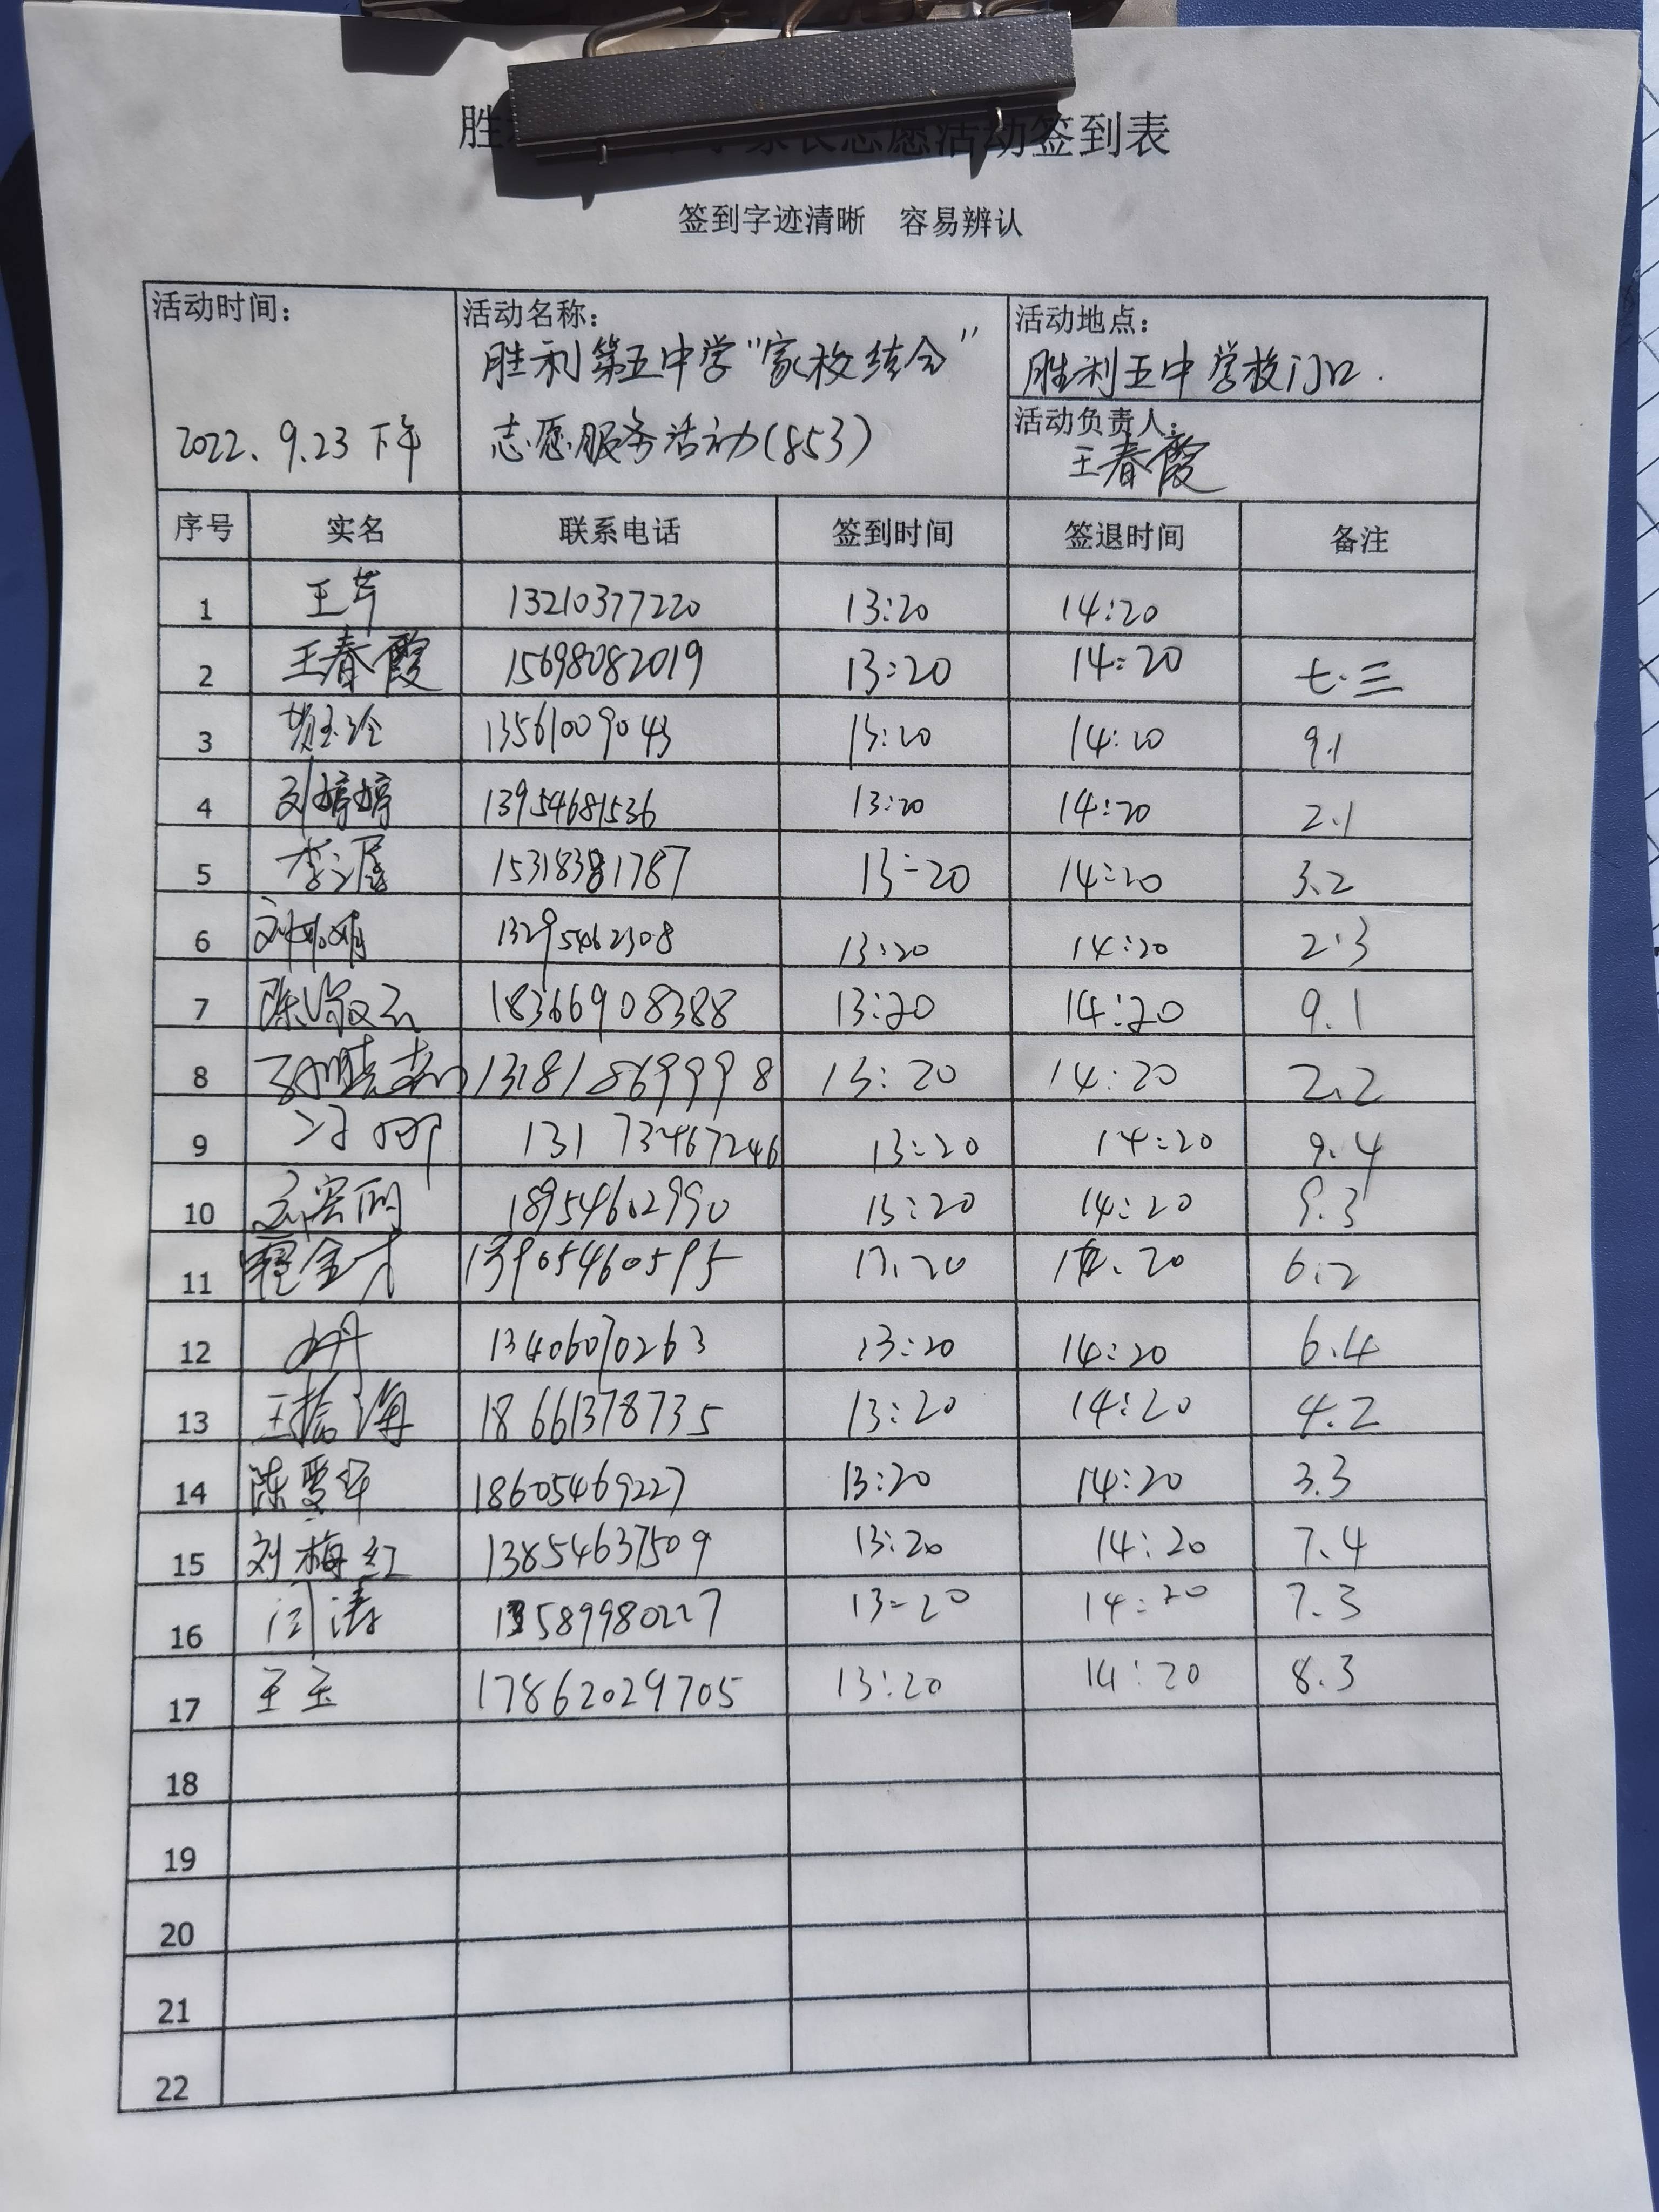 胜 家长志愿活动签到表
签到字迹清晰 容易辨认
活动时间: 2022.9.23 下午
活动名称:
胜利第五中学"家校结合"
志愿服务活动(853)
活动地点:
胜利五中学校门口.
活动负责人:
王春霞
序号 实名 联系电话 签到时间 签退时间 备注
1 王芹 13210377220 13:20 14:20
2 王春霞 15698082019 13:20 14:20 七.三
3 13561009043 13:20 14:20 9.1
4 刘婷婷 13954681536 13:20 14:20 2.1
5 15318381787 13:20 14:20 3.2
6 13295462308 13:20 14:20 2.3
7 18366908388 13:20 14:20 9.1
8 13181869998 13:20 14:20 2.2
9 13173467246 13:20 14:20 9.4
10 18954602990 13:20 14:20 9.3
11 13905460595 13.20 14.20 6.2
12 13406070263 13:20 14:20 6.4
13 18661378735 13:20 14:20 4.2
14 18605469227 13:20 14:20 3.3
15 刘梅红 13854637509 13:20 14:20 7.4
16 闫涛 13589980227 13:20 14:20 7.3
17 王玉 17862029705 13:20 14:20 8.3
18
19
20
21
22